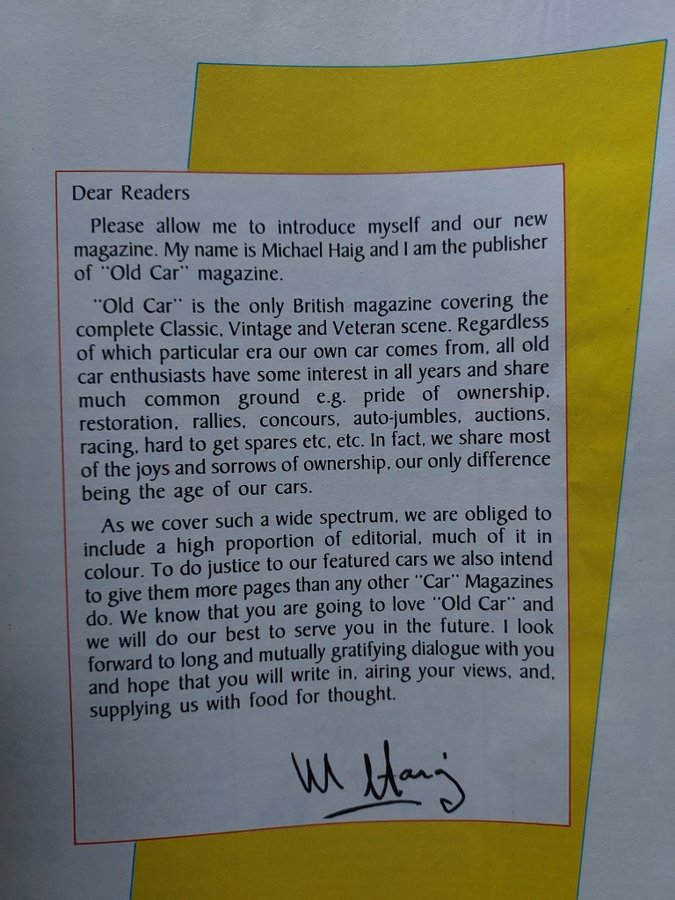 Dear Readers
Please allow me to introduce myself and our new
magazine. My name is Michael Haig and I am the publisher
of "Old Car" magazine.
"Old Car" is the only British magazine covering the
complete Classic, Vintage and Veteran scene. Regardless
of which particular era our own car comes from, all old
car enthusiasts have some interest in all years and share
much common ground e.g. pride of ownership,
restoration, rallies, concours, auto-jumbles, auctions,
racing, hard to get spares etc, etc. In fact, we share most
of the joys and sorrows of ownership, our only difference
being the age of our cars.
As we cover such a wide spectrum, we are obliged to
include a high proportion of editorial, much of it in
colour. To do justice to our featured cars we also intend
to give them more pages than any other "Car" Magazines
do. We know that you are going to love "Old Car" and
we will do our best to serve you in the future. I look
forward to long and mutually gratifying dialogue with you
and hope that you will write in, airing your views, and,
supplying us with food for thought.
M Haig